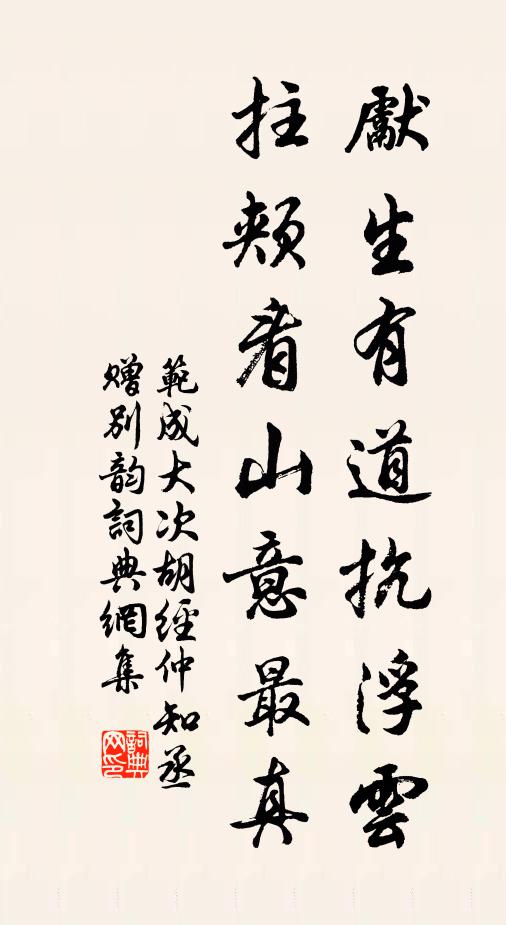 獻生有道抗浮雲
拄頰看山意最真
範成大次胡經仲知丞
贈別韵詞典網集
詞典
网印